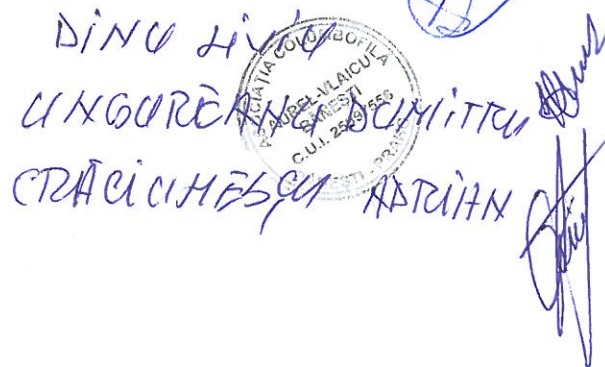 DINU LIVIU
UNGUREANU DUMITRU
CRĂCIUNESCU ADRIAN
ASOCIAȚIA COLUMBOFILA
AUREL-VLAICU
BĂNEȘTI
C.U.I.
BĂNEȘTI - PRAHOVA